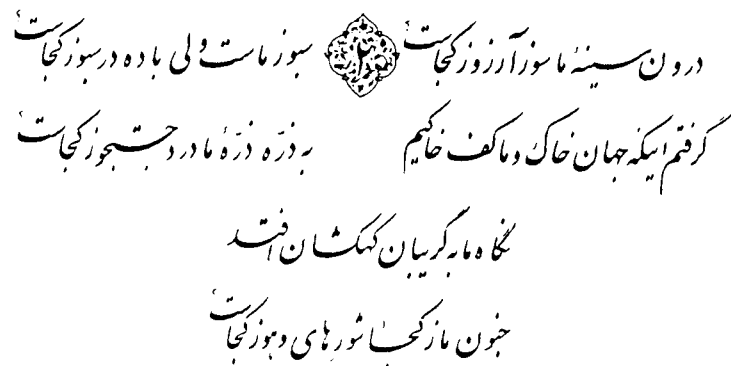 درون سینهٔ ما سوز آرزو ز کجاست؟ ۲ سبو ز ماست ولی باده در سبو ز کجاست؟
گرفتم اینکه جهان خاک و ما کف خاکیم به ذرّه ذرّهٔ ما درد جستجو ز کجاست؟
نگاه ما به گریبان کهکشان افتد
جنون ما ز کجا شور های و هو ز کجاست؟